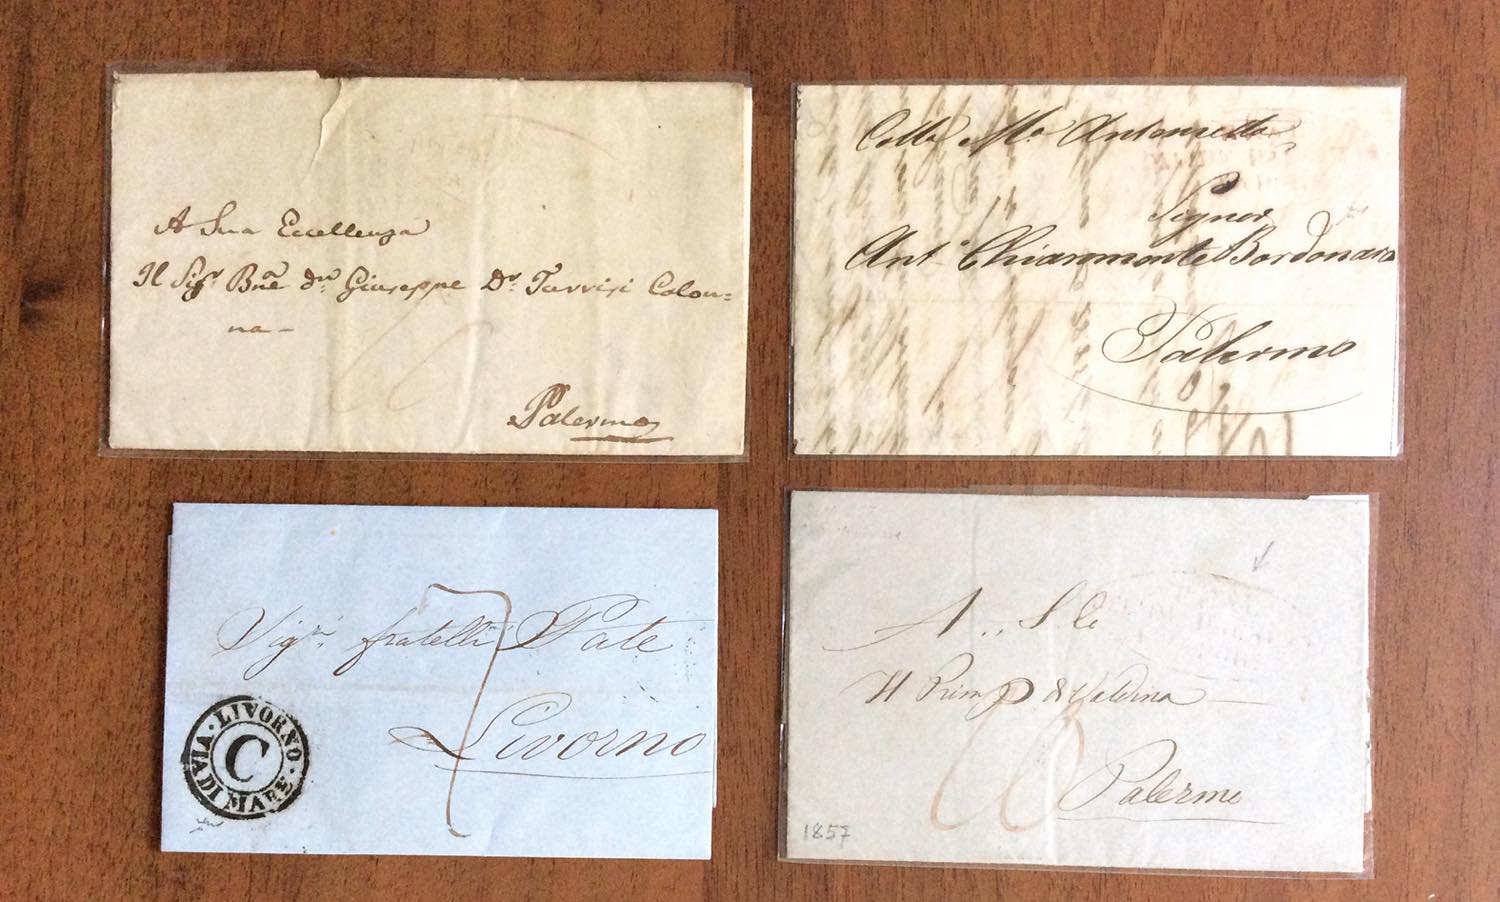 A Sua Eccellenza
Il Sigr Bne dn Giuseppe Dr Turrisi Colon=
na-
Palermo
Colla Ma Antonietta
Signor
Ant. Chiaramonte Bordonaro
Palermo
Sigri fratelli Pate
7
Livorno
LIVORNO
C
VIA DI MARE
A S. E.
Il Principe di Valdina
Palermo
1857